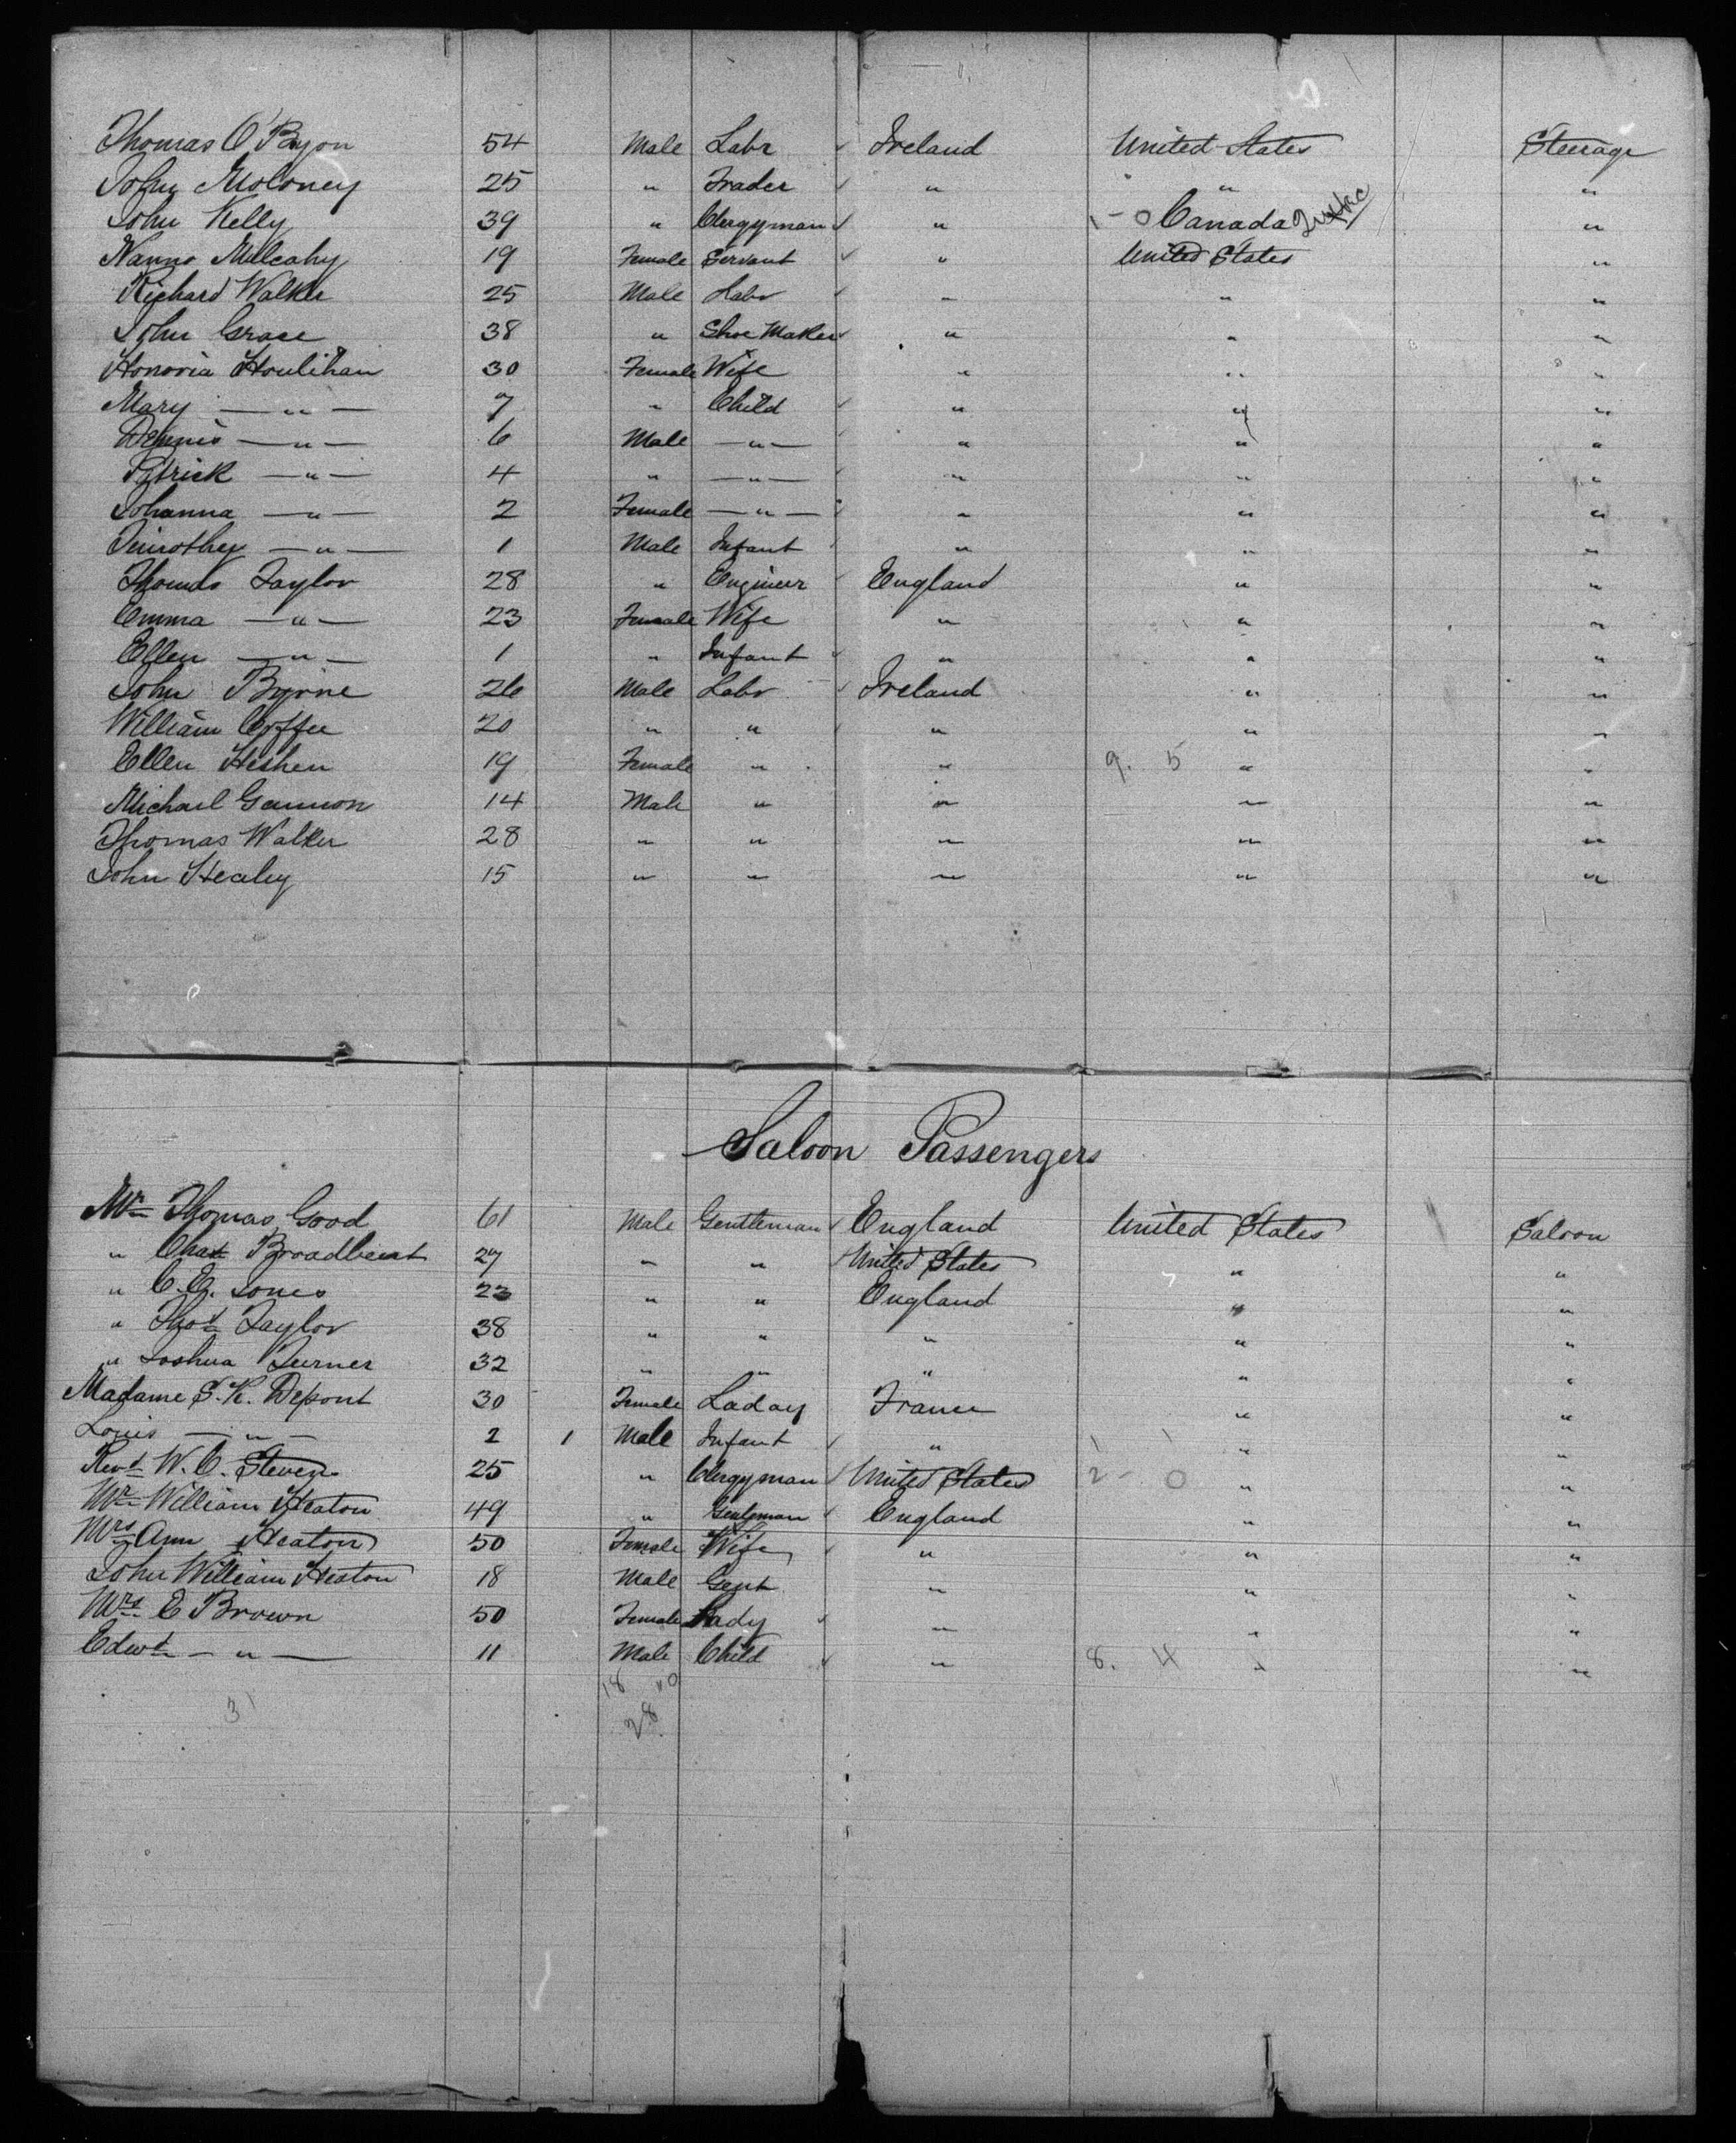 Thomas O'Bryon 54 Male Labr Ireland United States Steerage
John Moloney 25 " Trader " " "
John Kelly 39 " Clergyman " 1-0 Canada "
Nanno Mulcahy 19 Female Servant " United States "
Richard Walker 25 Male Labr " " "
John Grace 38 " Shoe Maker " " "
Honoria Houlihan 30 Female Wife " " "
Mary — " — 7 " Child " " "
Dennis — " — 6 Male — " — " " "
Patrick — " — 4 " — " — " " "
Johanna — " — 2 Female — " — " " "
Timothey — " — 1 Male Infant " " "
Thomas Taylor 28 " Engineer England " "
Emma — " — 23 Female Wife " " "
Ellen — " — 1 " Infant " " "
John Byrne 26 Male Labr Ireland " "
William Coffee 20 " " " " "
Ellen 19 Female " " 9. 5 " "
Michael Gannon 14 Male " " " "
Thomas Walker 28 " " " " "
John Healey 15 " " " " "
Saloon Passengers
Mr Thomas Good 61 Male Gentleman England United States Saloon
" Chas Broadbent 27 " " United States " "
" C. E. Jones 23 " " England " "
" Thos Taylor 38 " " " " "
" Joshua Turner 32 " " " " "
Madame S. K. Depont 30 Female Laday France " "
Louis — " — 2 1 Male Infant " 1 1 " "
Revd W. C. Stevens 25 " Clergyman United States 2 - 0 " "
Mr William Heaton 49 " Gentleman England " "
Mrs Ann Heaton 50 Female Wife " " "
John William Heaton 18 Male Gent " " "
Mrs E Brown 50 Female Lady " " "
Edwd — " — 11 Male Child " 8. 4 " "
18 10
31 28